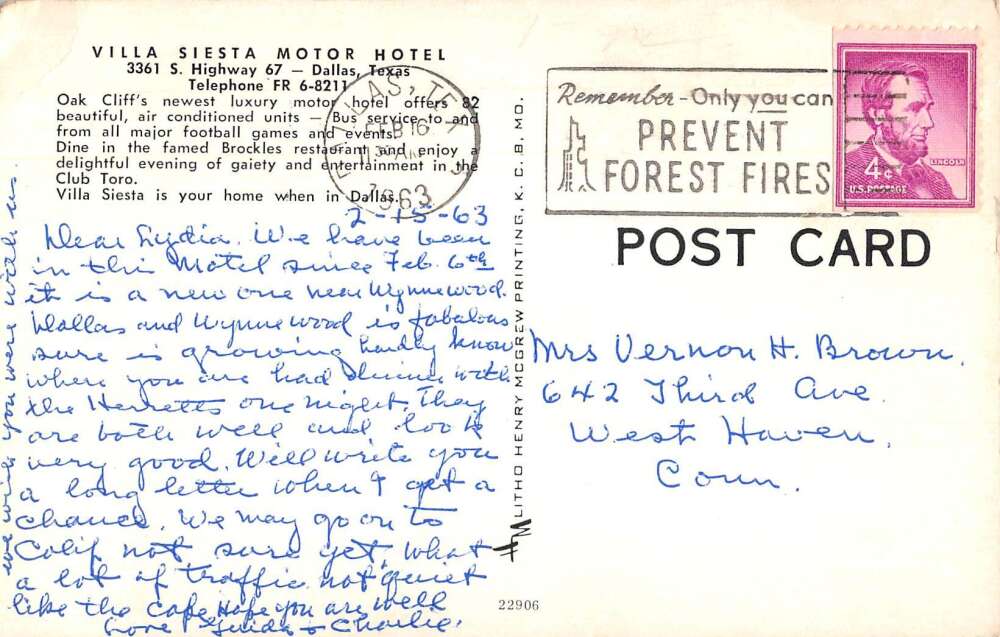 VILLA SIESTA MOTOR HOTEL
3361 S. Highway 67 — Dallas, Texas
Telephone FR 6-8211
Oak Cliff's newest luxury motor hotel offers 82
beautiful, air conditioned units — Bus service to and
from all major football games and events.
Dine in the famed Brockles restaurant and enjoy a
delightful evening of gaiety and entertainment in the
Club Toro.
Villa Siesta is your home when in Dallas.
DALLAS, TEX
FEB 16
AM
1963
Remember - Only you can
PREVENT
FOREST FIRES
LINCOLN
4¢
U.S. POSTAGE
POST CARD
2-15-63
Dear Lydia. We have been
in this Motel since Feb. 6th
it is a new one near Wynnewood.
Dallas and Wynnewood is fabulous
sure is growing hardly know
where you are had dinner with
the Herretts one night. They
are both well and look
very good. Will write you
a long letter when I get a
chance. We may go on to
Calif not sure yet, What
a lot of traffic not quiet
like the cape Hope you are well
Love & Charlie.
we wish you were with us
LITHO HENRY MCGREW PRINTING, K. C. 8, MO.
Mrs Vernon H. Brown.
642 Third Ave.
West Haven.
Conn.
22906